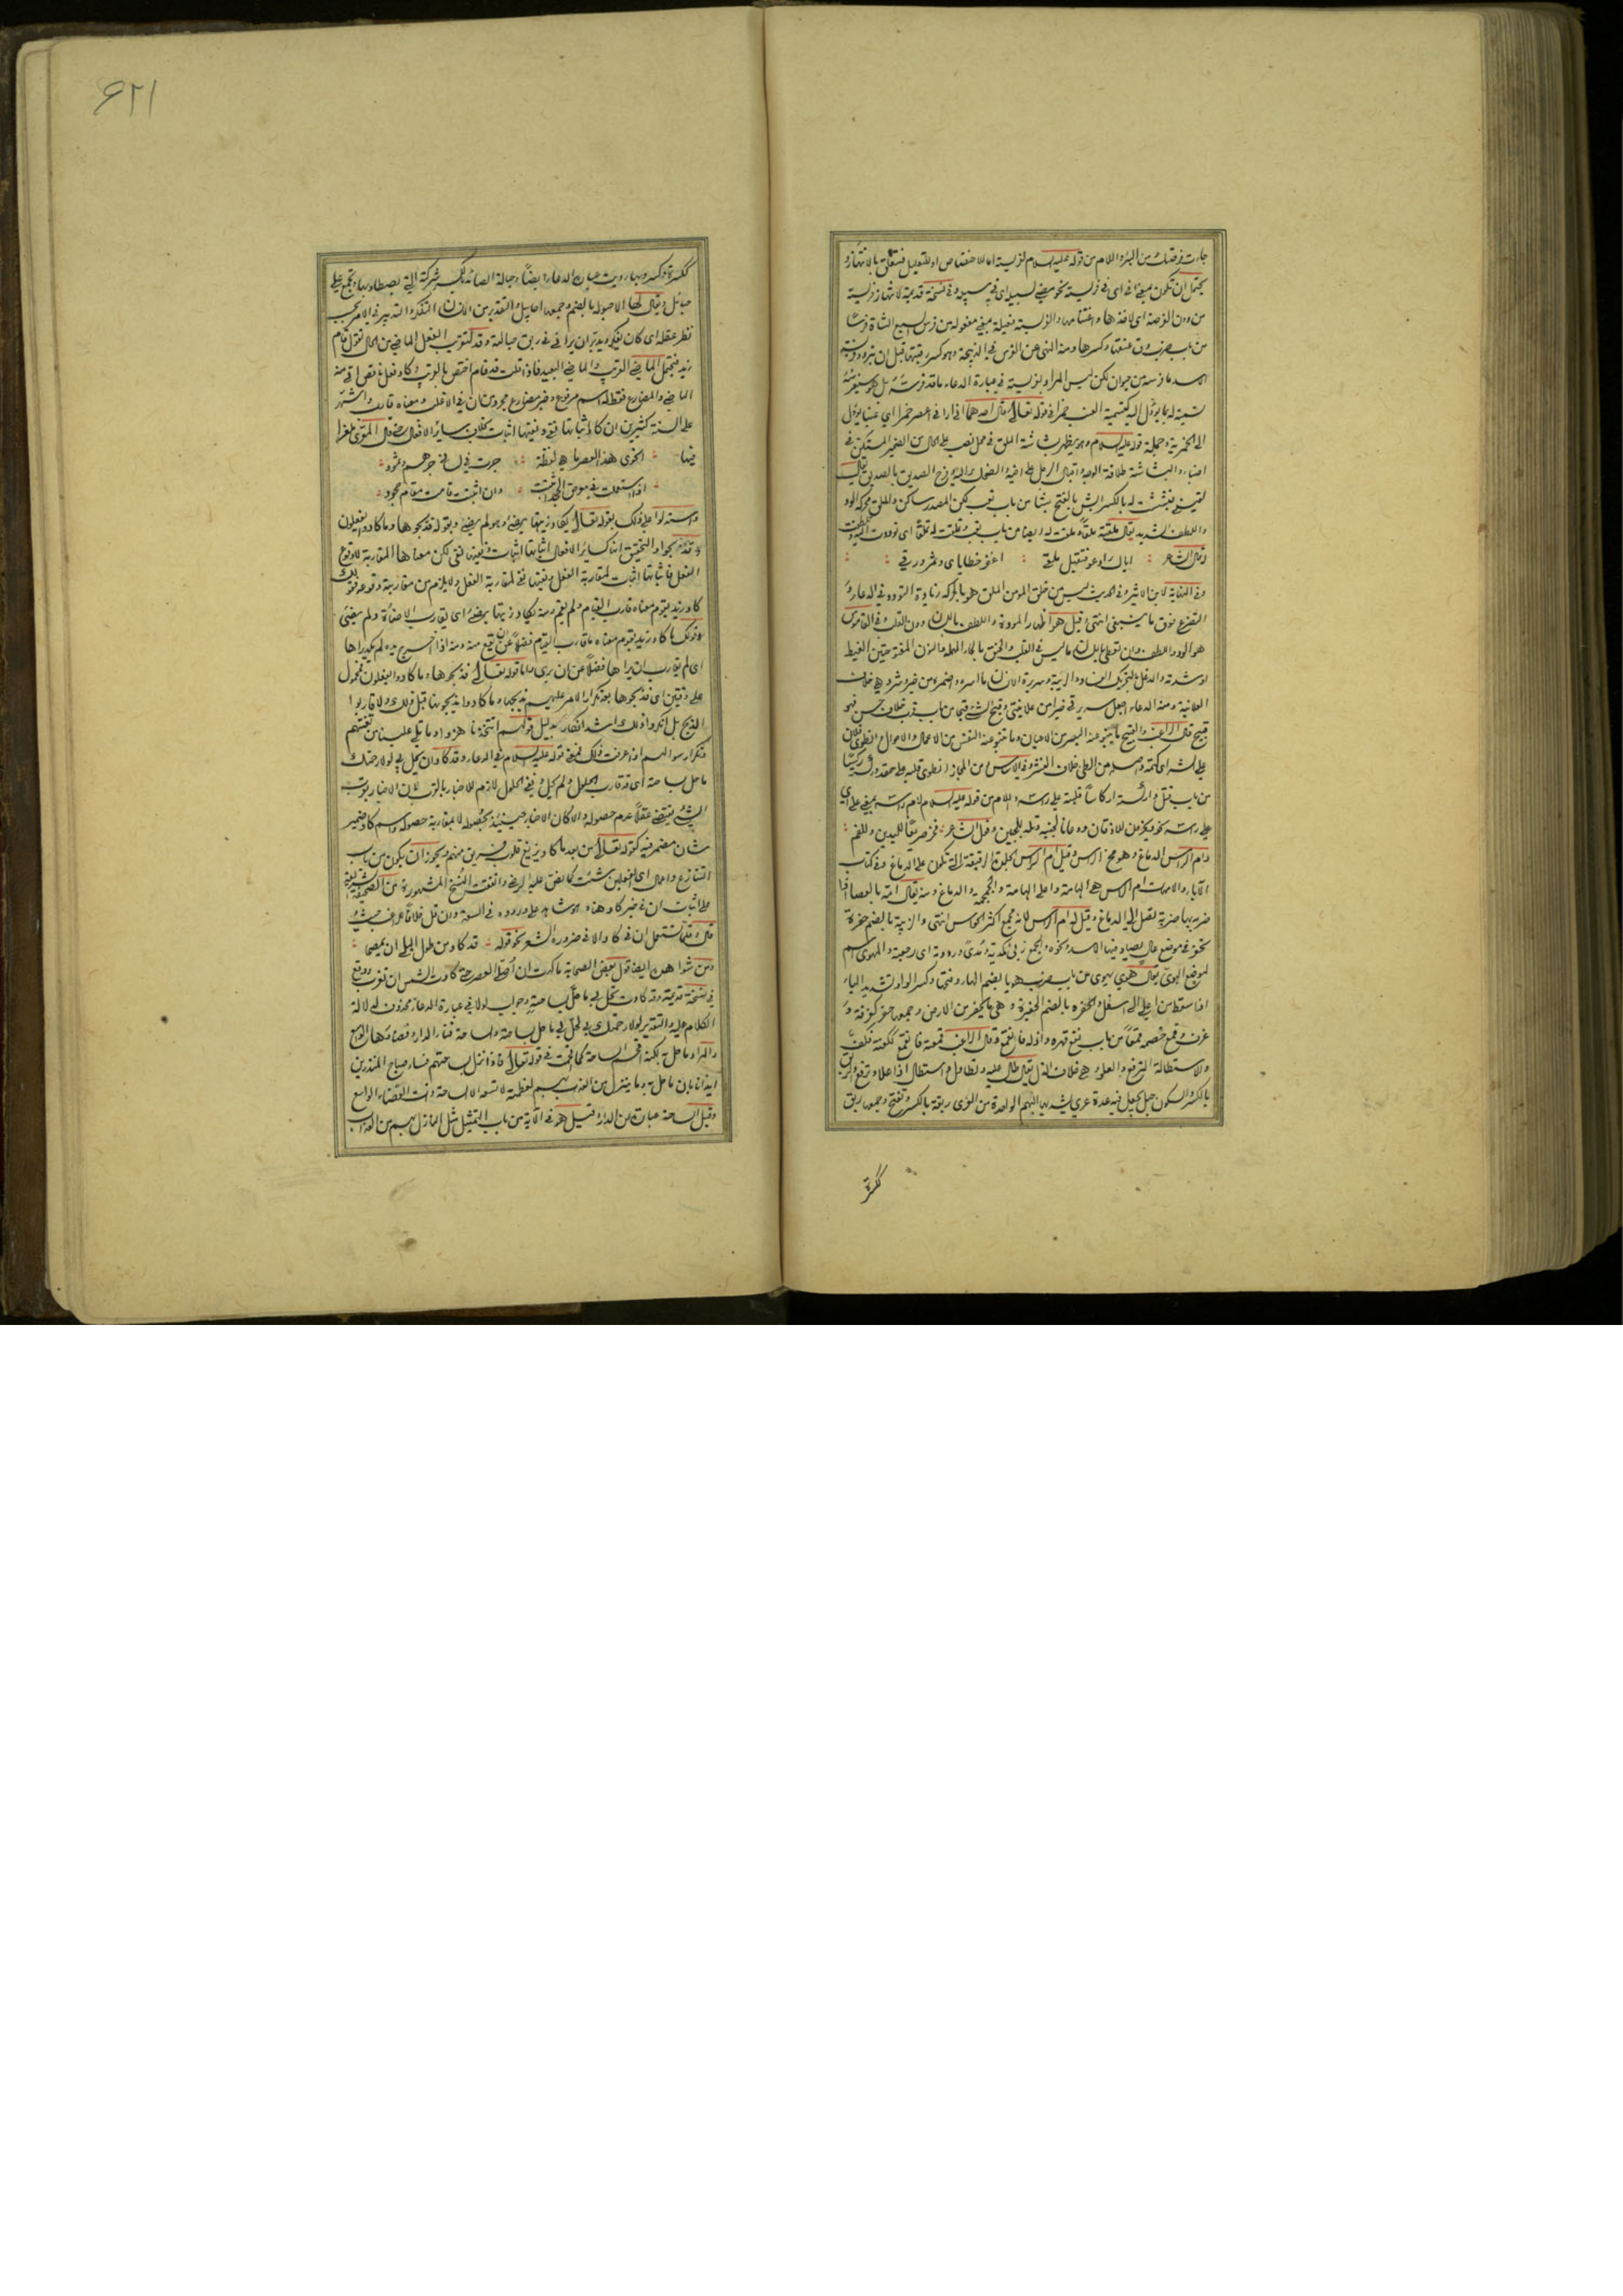 جاءت فرصتك من البئر واللام من قوله عليه السلام لفريسته اما للاختصاص او للتعليل فتتعلق بالانتهاز و
يحتمل ان تكون بمعنى في اى في فريسته نحو مضى لسبيله اى في سبيله وفي نسخة قديمة لانتهاز فريسته
من دون الفرصة اى لاخذها واغتنامها والفريسة فعيلة بمعنى مفعولة من فرس السبع الشاة فرسا
من باب ضرب دق عنقها وكسرها ومنه النهى عن الفرس في الذبيحة وهو كسر رقبتها قبل ان تبرد وفريسة
الاسد ما فرسه من حيوان لكن ليس المراد بفريسته في عبارة الدعاء ما قد فرسه بل ما سيفرسه
تسمية له بما يؤل اليه كتسمية العنب خمرا في قوله تعالى قال احدهما انى ارانى اعصر خمرا اي عنبا يؤل
الى الخمرية وجملة قوله عليه السلام وهو يظهر بشاشة الملق في محل نصب على الحال من الضمير المستكن في
اضباء والبشاشة طلاقة الوجه واقبال الرجل على اخيه والضحك اليه وفرح الصديق بالصديق يقال
لقيته فبشت له بالكسر ابش بالفتح بشا من باب تعب لكن المصدر ساكن والملق محركة الود
واللطف الشديد يقال ملقته ملقا وملقت له ايضا من باب تعب وتملقت له تملقا اى توددت اليه وتلطفت
وقال الشاعر : اياك ادعو فتقبل ملقى : اغفر خطاياى وثمر ورقى :
وفي النهاية لابن الاثير وفي الحديث ليس من خلق المؤمن الملق هو بالحركة زيادة التودد في الدعاء و
التضرع فوق ما ينبغي انتهى وقيل هو اظهار المودة واللطف باللسان دون القلب وفي القاموس
هو الود واللطف وان تعطى باللسان ما ليس في القلب والحنق بالحاء المهملة والنون المفتوحتين الغيظ
او شدته والدغل بالتحريك الفساد والريبة وسريرة الانسان ما اسره واضمره من خير وشر وهي خلاف
العلانية ومنه الدعاء اجعل سريرتي خيرا من علانيتي وقبح الشيء قبحا من باب قرب خلاف حسن فهو
قبيح قال الراغب والقبيح ما ينبو عنه البصر من الاعيان وما تنبو عنه النفس من الاعمال والاحوال وانطوى فلان
على كذا اى كتمه واصله من الطى خلاف النشر وفي الاساس ومن المجاز انطوى قلبه على حقد وركسه ركسا
من باب قتل واركسه اركاسا قلبه على راسه واللام من قوله عليه السلام لام راسه بمعنى على اى
على راسه نحو ويخرون للاذقان ودعانا لجنبه وتله للجبين وقول الشاعر : فخر صريعا لليدين وللفم :
وام الراس الدماغ وهو مخ الراس وقيل ام الراس الجلدة الرقيقة التي تكون على الدماغ وفي كتاب
الآباء والامهات ام الراس هي الهامة واعلى الهامة والجمجمة والدماغ ومنه يقال امه بالعصا اذا
ضربه بها ضربة تصل الى الدماغ وقيل له ام الراس لانه مجمع اكثر الحواس انتهى والزبية بالضم حفرة
تحفر في موضع عال يصاد فيها الاسد ونحوه والجمع زبى كمدية ومدى وردوة اى رجعة والمهوى اسم
لموضع الهوى يقال هوى يهوى من باب ضرب هويا بضم الهاء وفتحها وكسر الواو وتشديد الياء
اذا سقط من اعلى الى اسفل والحفرة بالضم الحفيرة وهي ما يحفر من الارض وجمعها حفر كغرفة و
غرف وقمع خصمه قمعا من باب نفع قهره واذله فانقمع وقال الراغب قمعته فانقمع ككففته فكف
والاستطالة الترفع والعلو وهي خلاف الذل يقال طال عليه وتطاول واستطال اذا علا وترفع والربق
بالكسر والسكون حبل يجعل فيه عدة عرى يشد بها البهم الواحدة من العرى ربقة بالكسر وتفتح وجمعها ربق
ككسرة
٤٢١
ككسرة وكسر وبها رويت عبارة الدعاء ايضا وحبالة الصائد بالكسر شركته التي يصطاد بها وتجمع على
حبائل ويقال لها الاحبولة بالضم وجمعها احابيل والتقدير من الانسان التفكر والتدبير في الامر بحسب
نظر عقله اى كان يفكر ويدبر ان يرانى في ربق حبالته وقد لتقريب الفعل الماضي من الحال تقول قام
زيد فيحتمل الماضي القريب والماضي البعيد فاذا قلت قد قام اختص بالقريب وكاد فعل ناقص اتى منه
الماضي والمضارع فقط له اسم مرفوع وخبر مضارع مجرد من ان في الاغلب ومعناه قارب واشتهر
على السنة كثيرين ان كاد اثباتها نفي ونفيها اثبات بخلاف سائر الافعال حتى قال المعرى ملغزا
فيها : انحوى هذا العصر ما هي لفظة : جرت في لساني جرهم وثمود :
: اذا استعملت في موضع الجحد اثبتت : وان اثبتت قامت مقام جحود :
واستدلوا على ذلك بقوله تعالى يكاد زيتها يضيء وهو لم يضيء وبقوله فذبحوها وما كادوا يفعلون
وقد ذبحوا والتحقيق انها كسائر الافعال اثباتها اثبات ونفيها نفي لكن معناها المقاربة لا وقوع
الفعل فاثباتها اثبات لمقاربة الفعل ونفيها نفي لمقاربة الفعل ولا يلزم من مقاربته وقوعه فقولك
كاد زيد يقوم معناه قارب القيام ولم يقم ومنه يكاد زيتها يضيء اى يقارب الاضاءة ولم يضئ
وقولك ما كاد زيد يقوم معناه ما قارب القيام فضلا عن ان يقع منه ومنه اذا اخرج يده لم يكد يراها
اى لم يقارب ان يراها فضلا عن ان يرى واما قوله تعالى فذبحوها وما كادوا يفعلون فمحمول
على وقتين اى فذبحوها بعد تكرار الامر عليهم بذبحها وما كادوا يذبحونها قبل ذلك ولا قاربوا
الذبح بل انكروا ذلك اشد انكار بدليل قولهم اتتخذنا هزوا وما يلى عليه من تعنتهم
وتكرار سؤالهم اذا عرفت ذلك فمعنى قوله عليه السلام في الدعاء وقد كاد ان يحل بي لولا رحمتك
ما حل بساحته اى قد قارب الحلول ولم يحل ونفي الحلول لازم للاخبار بالقرب لان الاخبار بقرب
الشيء يقتضى عقلا عدم حصوله والا لكان الاخبار حينئذ بحصوله لا بمقاربة حصوله واسم كاد ضمير
شان مضمر فيه كقوله تعالى من بعد ما كاد يزيغ قلوب فريق منهم ويجوز ان يكون من باب
التنازع واعمال اى الفعلين شئت كما نص عليه الرضي واتفقت النسخ المشهورة من الصحيفة الشريفة
على اثبات ان في خبر كاد هنا وهو شاهد على وروده في السعة وان قل خلافا للراغب حيث
قال وقلما تستعمل ان في كاد الا في ضرورة الشعر نحو قوله : قد كاد من طول البلى ان يمصحا :
ومن شواهده ايضا قول بعض الصحابة ما كدت ان اصلى العصر حتى كادت الشمس ان تغرب ووقع
في نسخة قديمة وقد كادت تحل بي ما حل بساحته وجواب لولا في عبارة الدعاء محذوف لدلالة
الكلام عليه والتقدير لولا رحمتك بي لحل بي ما حل بساحته والساحة فناء الدار وفضاؤها الواسع
والمراد ما حل به لكنه اقحم الساحة كما اقحمت في قوله تعالى فاذا نزل بساحتهم فساء صباح المنذرين
ايذانا بان ما حل به وما ينزل من العذاب بهم لعظمه لا تسعه الا الساحة ذات الفضاء الواسع
وقيل الساحة عبارة من الدار وقيل هو في الآية من باب التمثيل مثل النازل بهم من العذاب